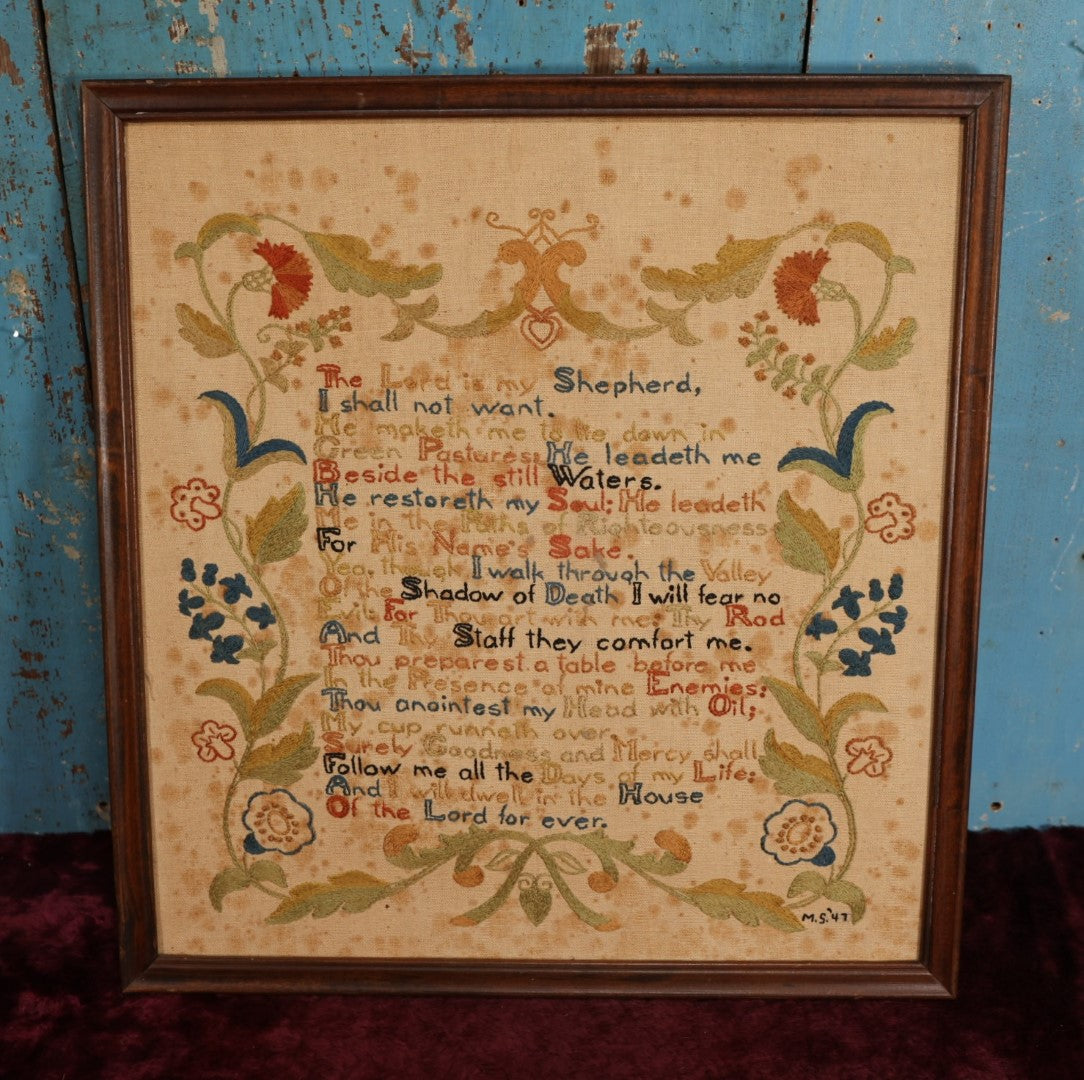 The Lord is my Shepherd,
I shall not want.
He maketh me to lie down in
Green Pastures: He leadeth me
Beside the still Waters.
He restoreth my Soul: He leadeth
Me in the Paths of Righteousness
For His Name's Sake.
Yea, though I walk through the Valley
Of the Shadow of Death I will fear no
Evil: For Thou art with me: Thy Rod
And Thy Staff they comfort me.
Thou preparest a table before me
In the Presence of mine Enemies:
Thou anointest my Head with Oil;
My cup runneth over.
Surely Goodness and Mercy shall
Follow me all the Days of my Life:
And I will dwell in the House
Of the Lord for ever.
M.S.'47